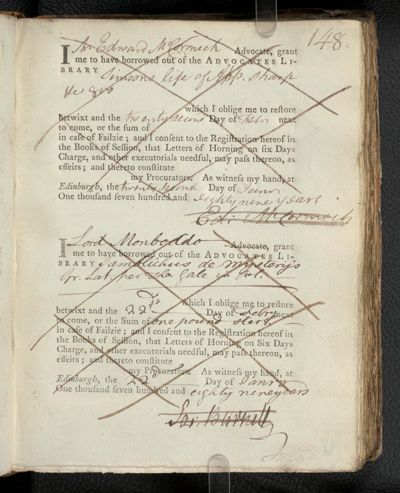 148.
I Mr Edward McCormick Advocate, grant
me to have borrowed out of the ADVOCATES LI-
BRARY Simsons life of Sharp
8vo
which I oblige me to restore
betwixt and the twenty second Day of next
to come, or the sum of
in case of Failzie; and I consent to the Registration hereof in
the Books of Session, that Letters of Horning on six Days
Charge, and other executorials needful, may pass thereon, as
effeirs; and thereto constitute
my Procurators. As witness my hand, at
Edinburgh, the twenty second Day of Janry
One thousand seven hundred and eighty nine years
Ed: McCormick
I Lord Monboddo Advocate, grant
me to have borrowed out of the ADVOCATES LI-
BRARY Jamblichus de mysterijs
Gr. Lat. per Tho: Gale in folio
which I oblige me to restore
betwixt and the 22d Day of Febry next
to come, or the Sum of one pound sterg
in case of Failzie; and I consent to the Registration hereof in
the Books of Session, that Letters of Horning on Six Days
Charge, and other executorials needful, may pass thereon, as
effeirs; and thereto constitute
my Procurators. As witness my hand, at
Edinburgh, the 22d Day of Janry
One thousand seven hundred and eighty nine years
Jas Burnett